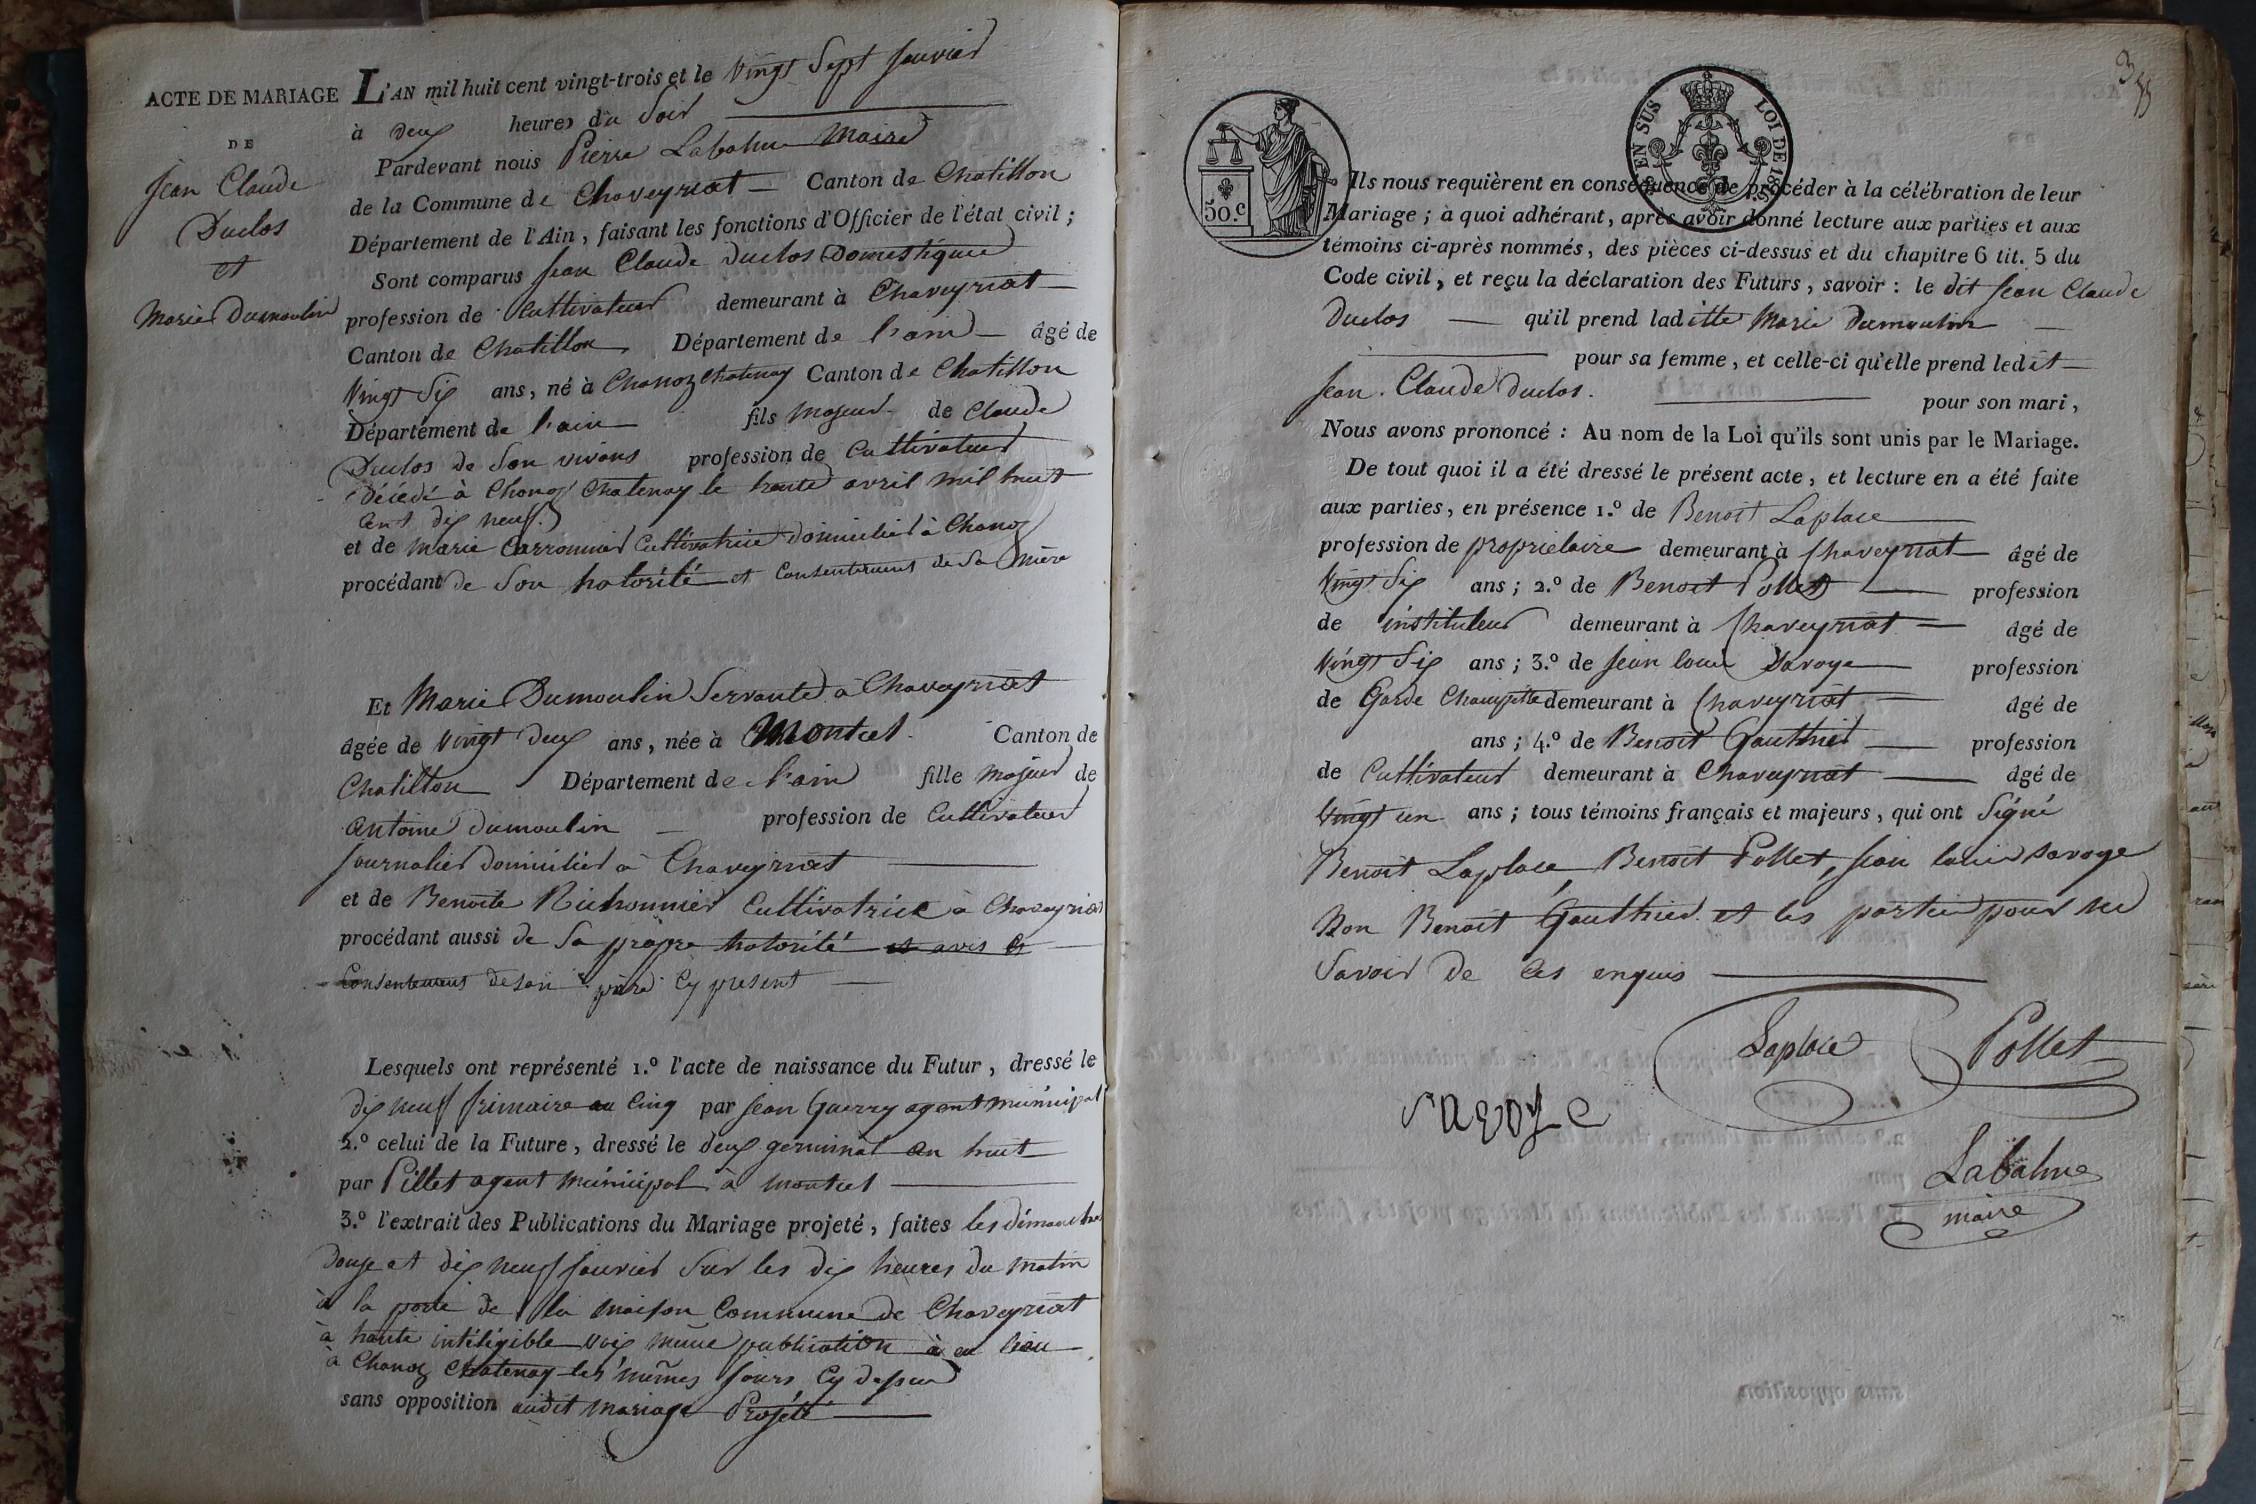 ACTE DE MARIAGE
DE
Jean Claude
Duclos
et
Marie Dumoulin
L'AN mil huit cent vingt-trois et le vingt Sept Janvier
à deux heures du Soir
Pardevant nous Pierre Labalme Maire
de la Commune de Chaveyriat Canton de Chatillon
Département de l'Ain, faisant les fonctions d'Officier de l'état civil ;
Sont comparus Jean Claude Duclos Domestique
profession de Cultivateur demeurant à Chaveyriat
Canton de Chatillon Département de l'ain âgé de
Vingt Six ans, né à Chanoz Chatenay Canton de Chatillon
Département de l'ain fils Majeur de Claude
Duclos de Son vivans profession de Cultivateur
décédé à Chanoz Chatenay le trente avril mil huit
Cent dix neuf
et de Marie Carronnier Cultivatrice domicilier à Chanoz
procédant de Son hotorité et Consentement de Sa Mère
Et Marie Dumoulin Servante à Chaveyriat
âgée de vingt deux ans, née à Montcet Canton de
Chatillon Département de l'ain fille Majeur de
antoine dumoulin profession de Cultivateur
Journalier domicilier à Chaveyriat
et de Benoite Richonnier Cultivatrice à Chaveyriat
procédant aussi de Sa propre hotorité et avis et
Consentement de son père Cy present
Lesquels ont représenté 1.º l'acte de naissance du Futur, dressé le
dix neuf frimaire an Cinq par Jean Guerry agent municipal
2.º celui de la Future, dressé le deux germinal an huit
par Pillet agent municipal à Montcet
3.º l'extrait des Publications du Mariage projeté, faites les dimanches
douze et dix neuf Janvier Sur les dix heures du matin
à la porte de la maison Commune de Chaveyriat
à haute intéligible voix même publication à eu lieu
à Chanoz Chatenay les mêmes Jours Cy dessus
sans opposition audit Mariage Projété
3
EN SUS LOI DE 18
50.c
Ils nous requièrent en conséquence de procéder à la célébration de leur
Mariage ; à quoi adhérant, après avoir donné lecture aux parties et aux
témoins ci-après nommés, des pièces ci-dessus et du chapitre 6 tit. 5 du
Code civil, et reçu la déclaration des Futurs, savoir : le dit Jean Claude
Duclos qu'il prend laditte Marie Dumoulin
pour sa femme, et celle-ci qu'elle prend ledit
Jean Claude Duclos. pour son mari,
Nous avons prononcé : Au nom de la Loi qu'ils sont unis par le Mariage.
De tout quoi il a été dressé le présent acte, et lecture en a été faite
aux parties, en présence 1.º de Benoit Laplace
profession de propriétaire demeurant à Chaveyriat âgé de
Vingt Six ans ; 2.º de Benoit Pollet profession
de instituteur demeurant à Chaveyriat âgé de
Vingt Six ans ; 3.º de Jean louis Savoye profession
de Garde Champêtre demeurant à Chaveyriat âgé de
ans ; 4.º de Benoit Gauthier profession
de Cultivateur demeurant à Chaveyriat âgé de
Vingt un ans ; tous témoins français et majeurs, qui ont Signé
Benoit Laplace, Benoit Pollet, Jean louis Savoye
Non Benoit Gauthier et les partie pour ne
Savoir de Ces enquis
Laplace Pollet
savoye
Labalme
maire